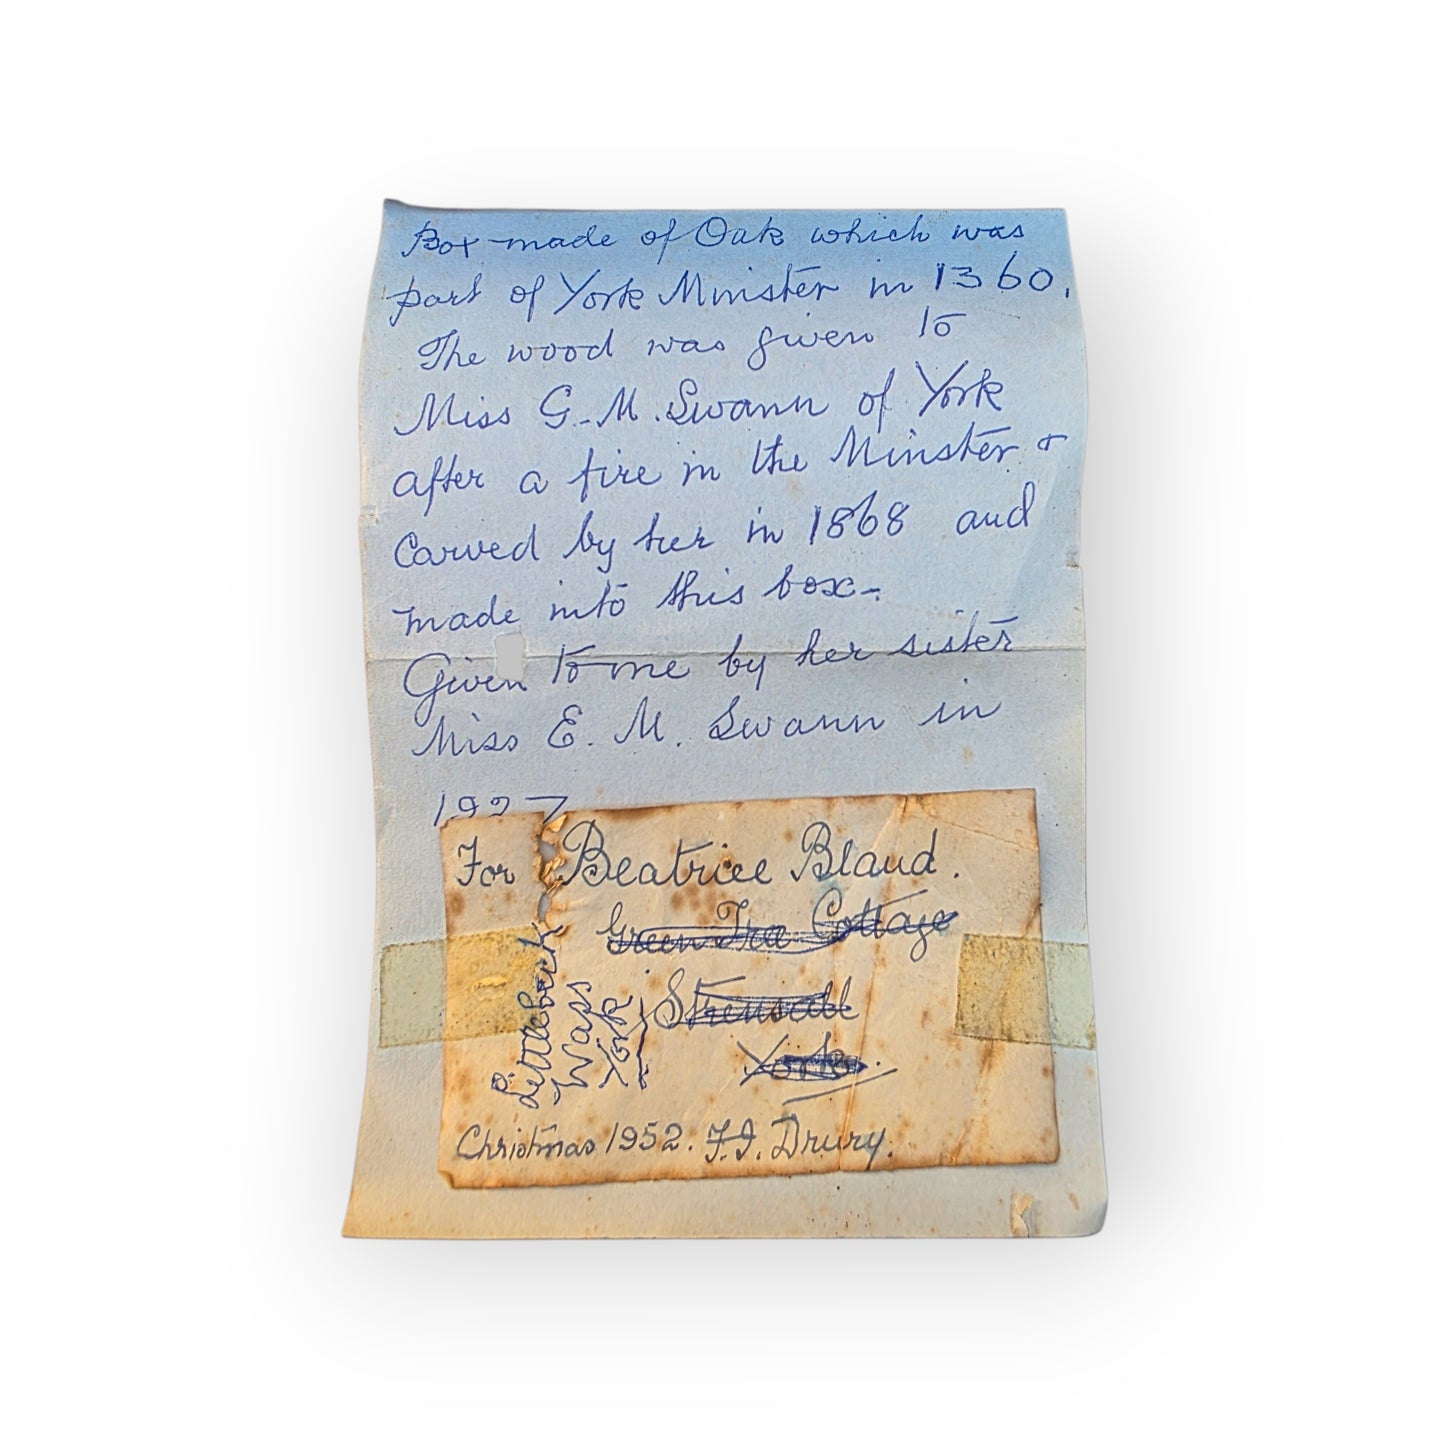 Box made of Oak which was
part of York Minister in 1360.
The wood was given to
Miss G. M. Swann of York
after a fire in the Minster &
Carved by her in 1868 and
made into this box -
Given to me by her sister
Miss E. M. Swann in
1927
For Beatrice Bland.
Green Tree Cottage
Strensall
York.
Littlebeck
Wass
York
Christmas 1952. F. I. Drury.